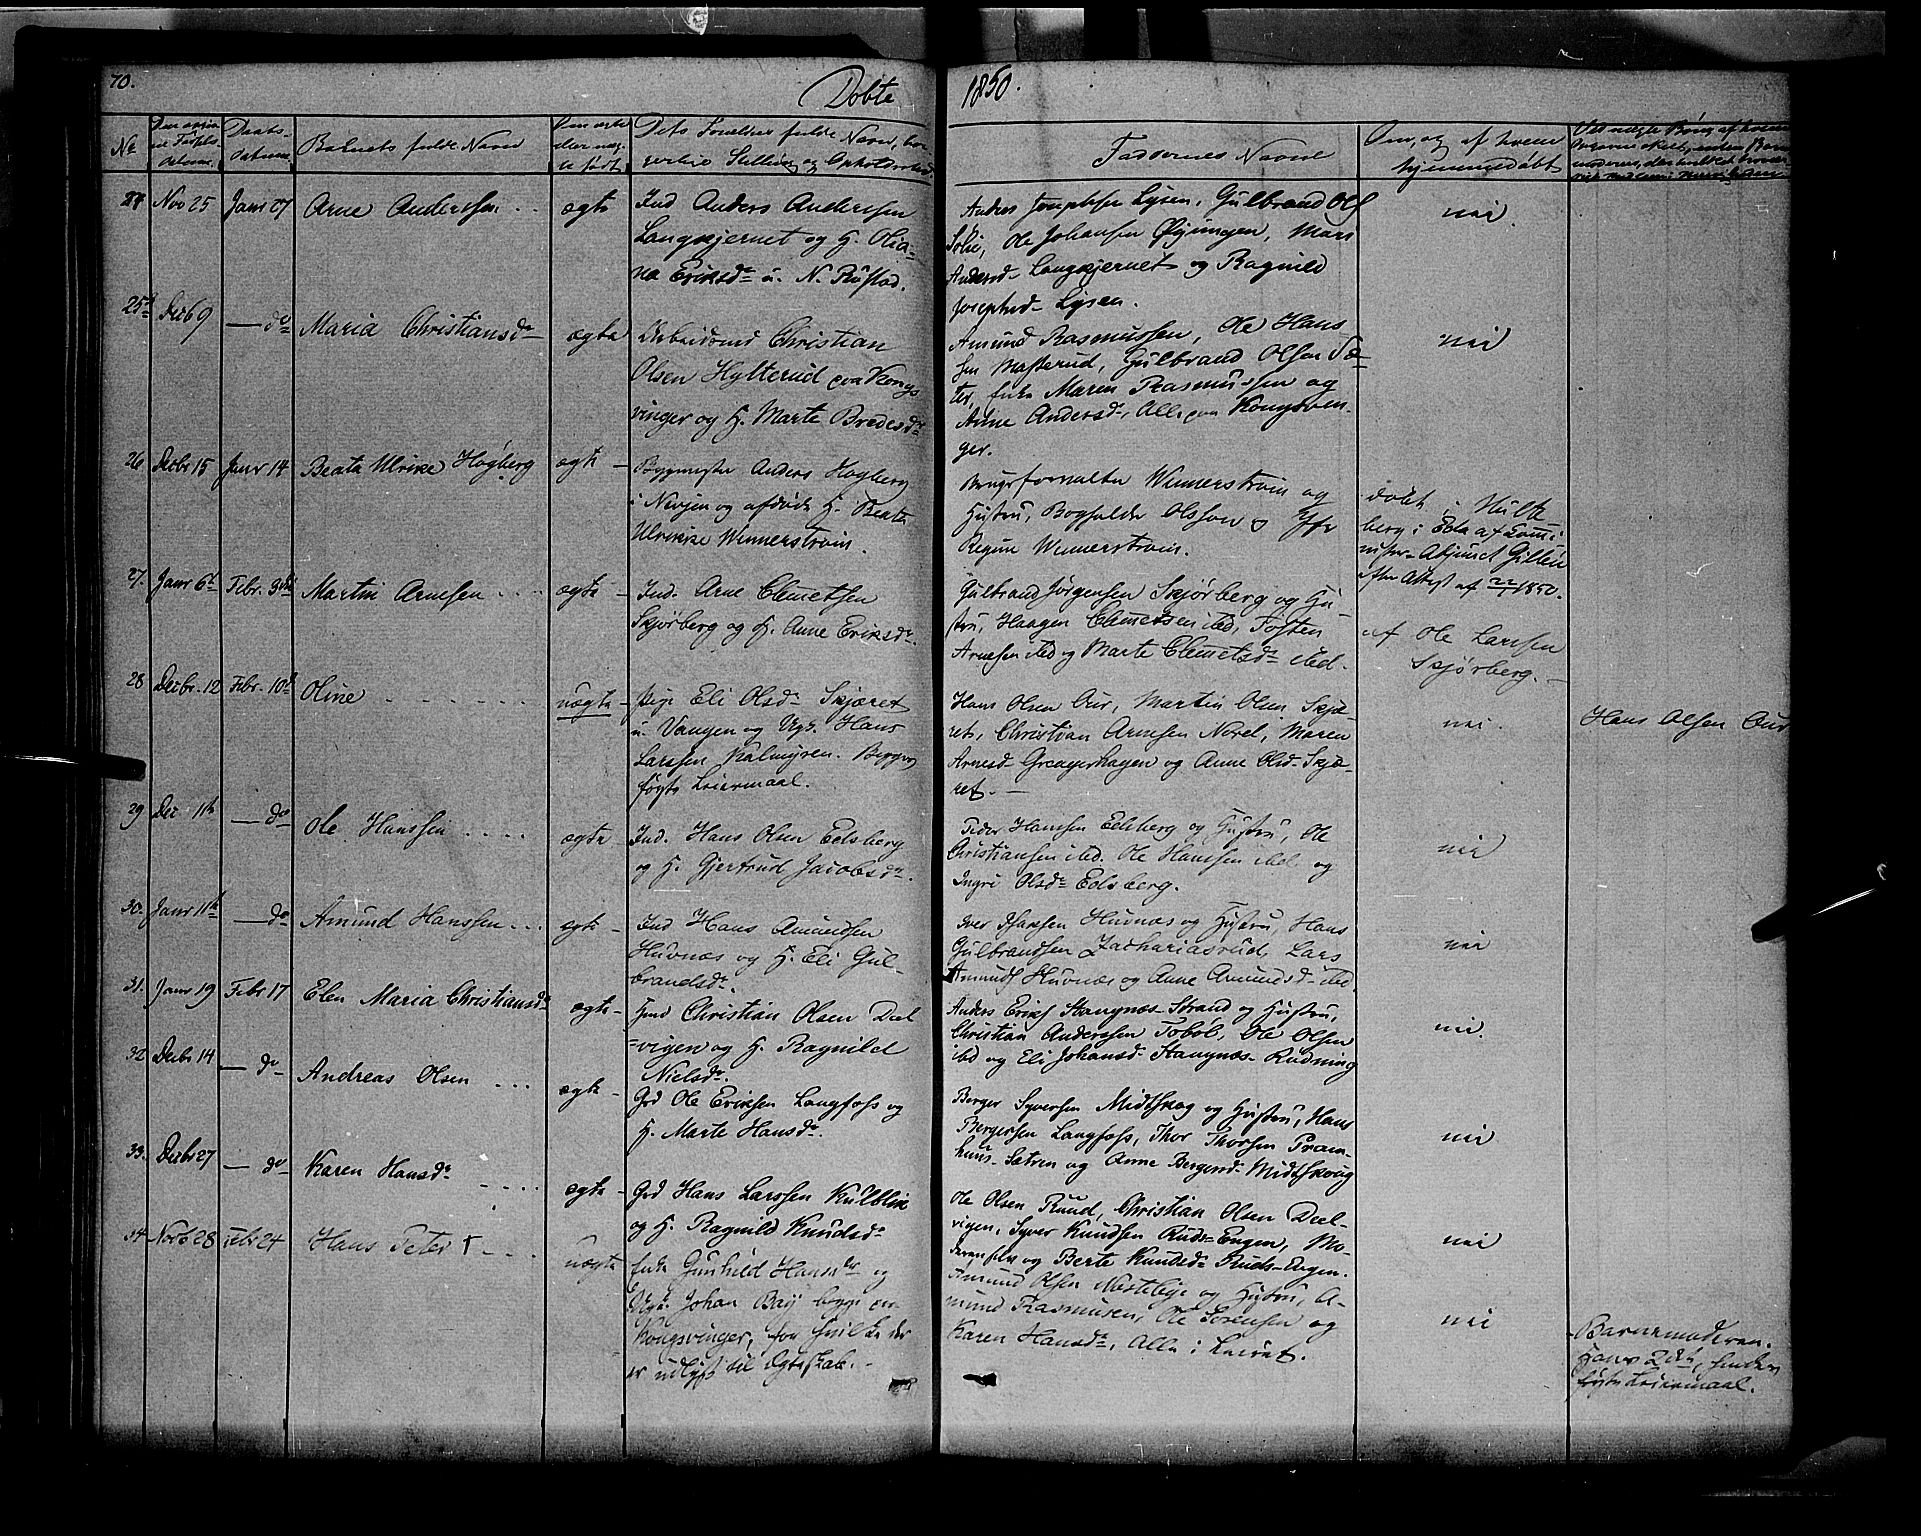 70.
Døbte
1850.
No
Barnets fulde Navn
Dets Forældres fulde Navn, bor-
gerlig Stilling og Opholdssted
Faddernes Navne
Om, og af hvem
hjemmedøbt
24 Nov 25 Janr 27 Arne Andersen ægte Ind Anders Andersen
Langkjernet og H. Olia-
na Eriksdr u. N. Rustad.
Anders Josephsen Lysen, Gulbrand Ols
Solie, Ole Johansen Øyungen, Mari
Andersd Langkjernet og Ragnild
Josephsd Lysen.
nei.
25 Decb 9 — do Maria Christiansdr ægte Arbeidsmd Christian
Olsen Hytterud paa Kongs
vinger og H. Marte Bredesdr
Amund Rasmussen, Ole Hans
sen Masterud, Gulbrand Olsen Sæ-
ter, Maren Rasmussen og
Anne Andersdr, Alle paa Kongsvin-
ger.
nei
26 Decbr 15 Janr 14 Beata Ulrike Högberg ægte — Bygmester Anders Hogberg
i Nevjen og afdøde H. Beata
Ulrikke Wennerstrøm.
Brugsforvalter Wennerstrøm og
Hustru, Bogholder Olsson
Regine Wennerstrøm.
døbt i
berg i Eda af Commi-
nister-Adjunct Gillén
efter Attest af 22/1 1850.
27. Janr 6t Febr. 3die Martin Arnesen ægte — Ind. Arne Clemetsen
Skjørberg og H. Anne Eriksdr.
Gulbrand Jørgensen Skjørberg og Hu-
stru, Haagen Clemetsen ibd, Tosten
Arnesen ibd og Marte Clemetsdr ibd.
af Ole Larssen
Skjørberg. —
28 Decbr. 12 Febr. 10d Oline uægte — Pige Eli Olsdr Skjæret
u. Vangen og Ugs. Hans
Larssen Kalmyren. Begges
første Leiermaal.
Hans Olsen Aur, Martin Olsen Skjæ-
ret, Christian Arnesen Norel, Maren
Arnesd Greagerhagen og Anne Olsd Skjæ-
ret. —
nei.
Hans Olsen Aur
29 Dec 11te — do Ole Hanssen ægte Ind. Hans Olsen Eelsberg
og H. Gjertrud Jacobsdr.
Peder Hansen Eelsberg og Hustru, Ole
Christiansen ibd. Ole Hanssen ibd og
Ingri Olsdr Eelsberg.
nei
30. Janr 11te — do Amund Hanssen ægte — Ind Hans Amundsen
Huvnæs og H. Eli Gul-
brandsdr.
Iver Huvnæs og Hustru, Hans
Gulbrandsen Zachariasrud, Lars
Amunds Huvnæs og Anne Amundsd ibd.
nei
31. Janr 19 Febr 17 Elen Maria Christiansdr ægte — Ind Christian Olsen Deel-
vigen og H. Ragnild
Nielsdr.
Anders Eriks Stangnæs-Strand og Hustru,
Christian Anderssen Tobøl, Ole Olsen
ibd og Eli Johansd Stangnæs-Rudning
nei.
32 Decbr 14 — do Andreas Olsen ægte — Grd Ole Eriksen Langfoss og
H. Marte Hansdr.
Berger Syversen Midtskog og Hustru, Hans
Bergersen Langfoss, Thor Thorsen Pram-
huus-Sætren og Anne Bergersd Midtskoug
nei
33. Decbr 27 — do Karen Hansdr ægte — Grd Hans Larssen Kulblik
og H. Ragnild Knudsdr
Ole Olsen Ruud, Christian Olsen Deel-
vigen, Syver Knudsen Ruds-Engen, Mo-
deren selv og Berte Knudsdr Ruds-Engen.
nei
34 Novb 28 Febr 24 Hans Peter † uægte Enke Gunhild Hansdr og
Ugk. Johan Bay begge paa
Kongsvinger, for hvilke der
er udlyst til Ægteskab. —
Amund Olsen Nestleje og Hustru, A-
mund Rasmusen, Ole Sørensen og
Karen Hansdr, Alle i Leiret.
nei
Barnemoderen.
Hans 2det, hendes
første Leiermaal.